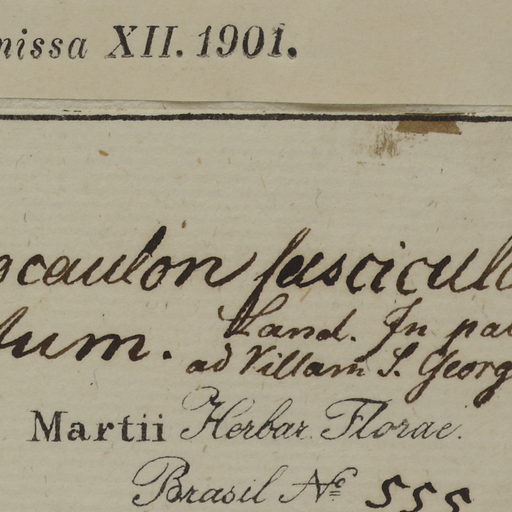 missa XII. 1901.
ocaulon fascicula
tum. Land. In pa
ad Villam S. Georg
Martii Herbar. Florae.
Brasil Nº 555